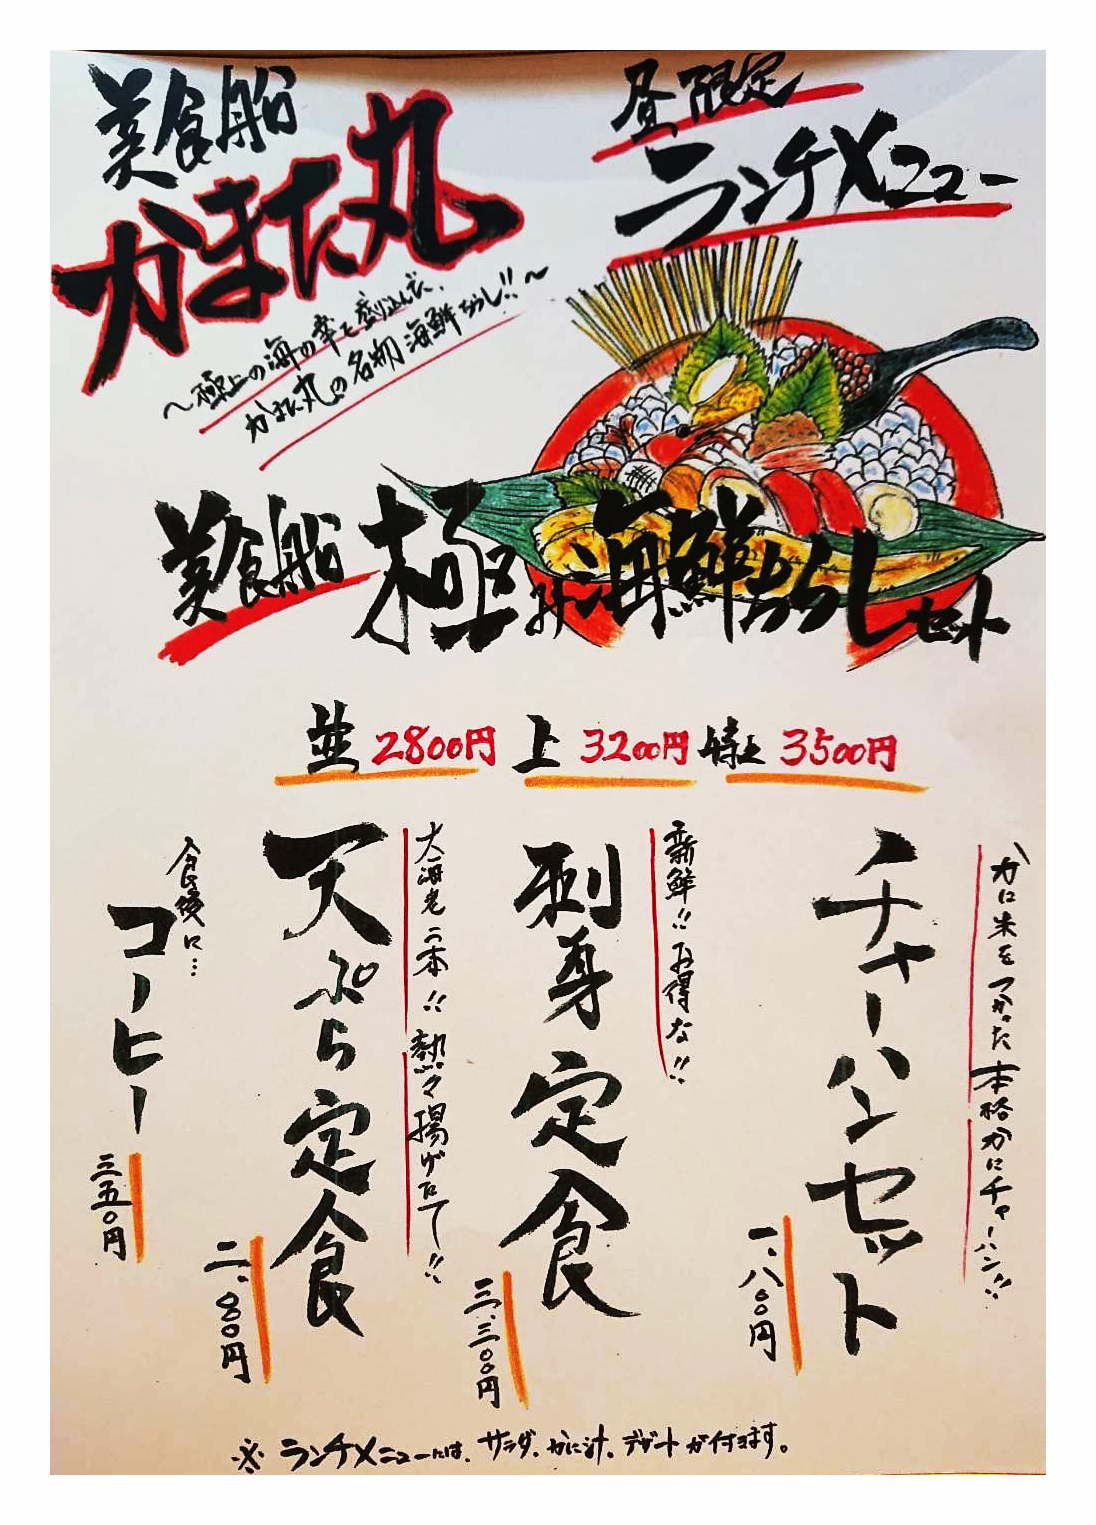 美食船
かまた丸
昼限定
ランチメニュー
〜極上の海の幸を盛り込んだ、
かまた丸の名物海鮮ちらし!!〜
美食船 極み海鮮ちらしセット
並 2800円 上 3200円 特上 3500円
かに米をつかった本格かにチャーハン!!
チャーハンセット
一、八〇〇円
新鮮!!お得な!!
刺身定食
三、三〇〇円
大海老二本!!熱々揚げたて!!
天ぷら定食
食後に…
コーヒー
三五〇円
※ ランチメニューには、サラダ、かに汁、デザートが付きます。